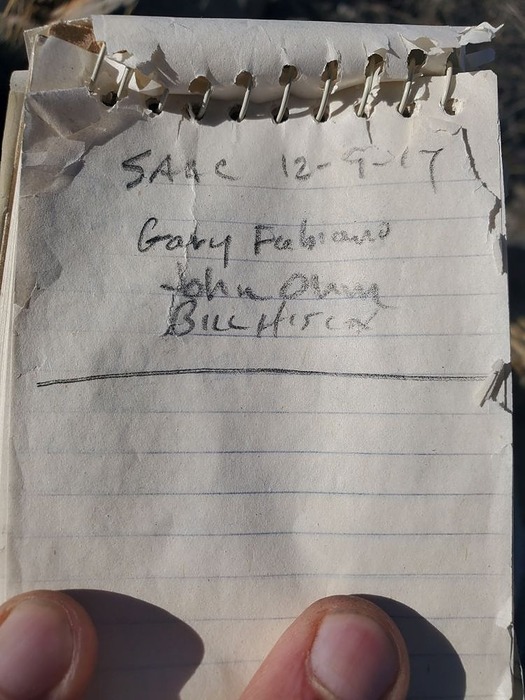 SAAC 12-9-17
Gary Fabiano
John
Bill